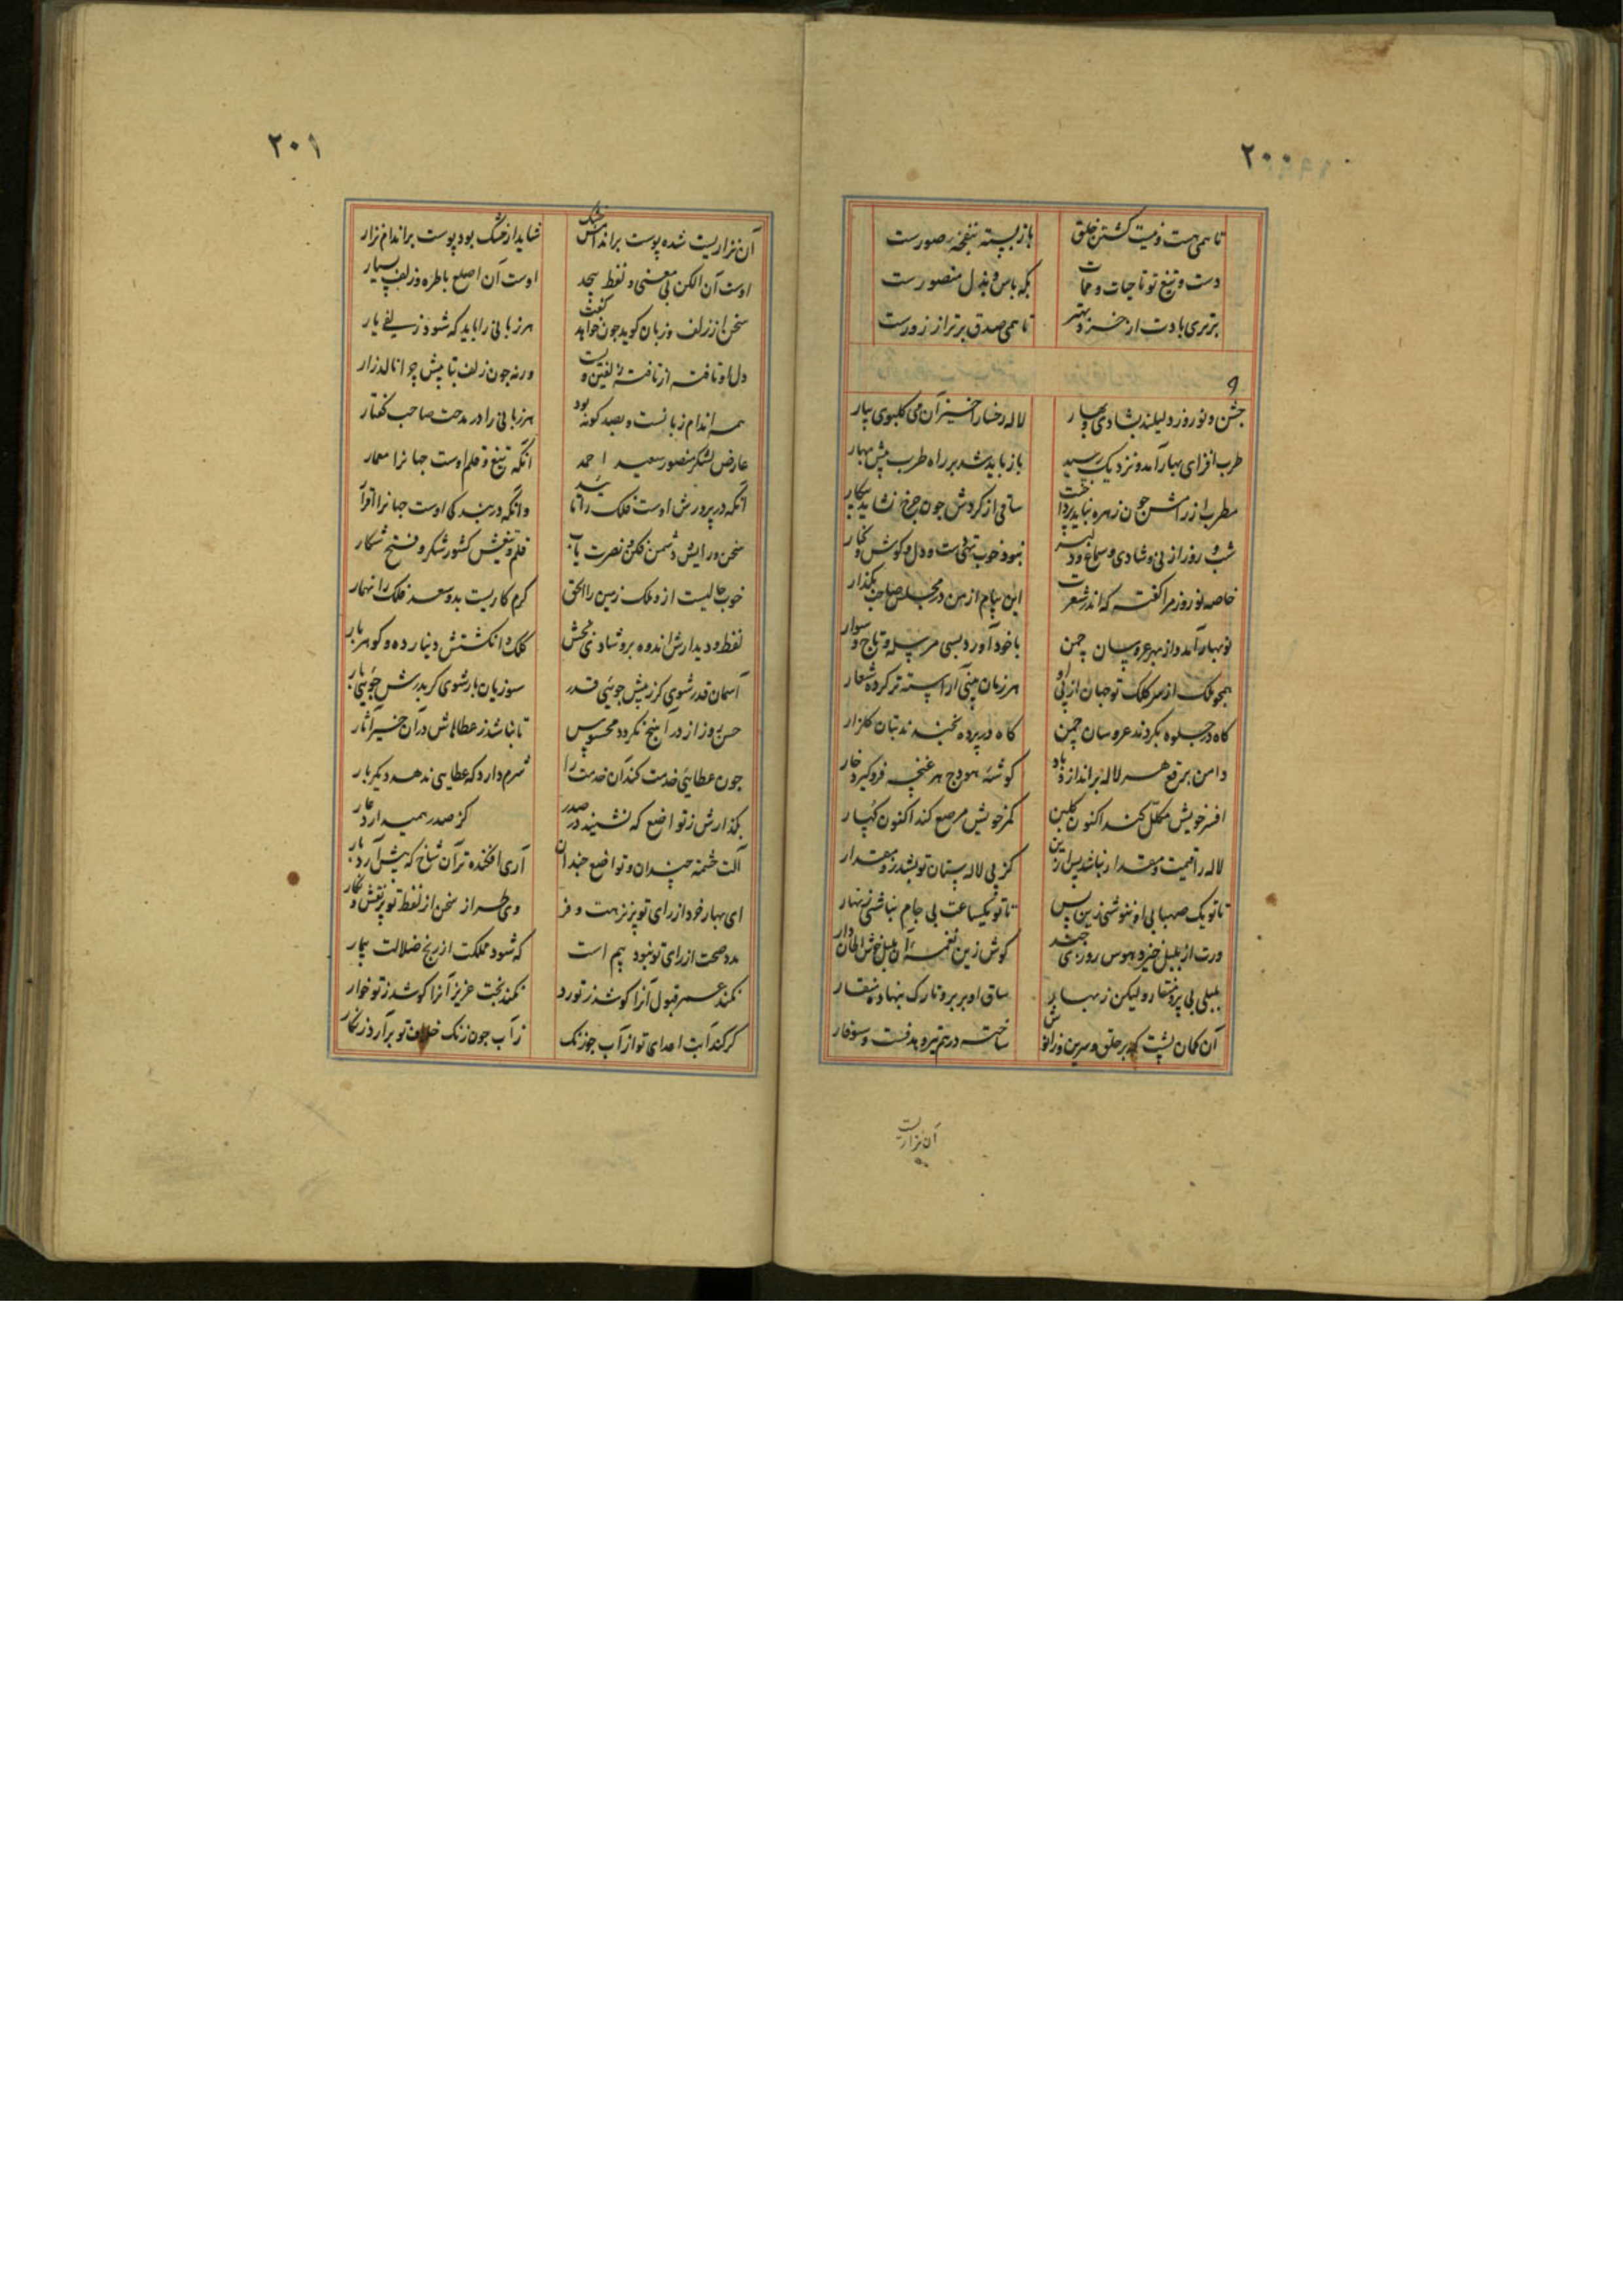 ۲۰۰
تا همی هست و نیست گشتن خلق باز بسته بنفخهٔ صورست
دست و تیغ تو تا حیات و ممات بکه باس و بذل منصورست
برتری بادت از خرد بهتر تا همی صدق برتر از زورست
جشن و نوروز دلیلند بشادی و بهار لاله رخسارا خیز آن می گلبوی بیار
طرب افزای بهار آمد و نزدیک رسید باز باید شد بر راه طرب پیش بهار
مطرب از رامش چون زهره نباید پرداخت ساقی از گردش چون چرخ نشاید بیکار
شب و روز از بی و شادی و سماع و دلبر نبود خوب تهی دست و دل و گوش و کنار
خاصه نوروز مرا گفت که اندر شعرت این پیام از من در مجلس صاحب بگذار
نوبهار آمد و از بهر عروسان چمن با خود آورد بسی مرسله و تاج و سوار
همچو ملک از سر کلک تو جهان از پی او هر زمان بینی آراسته تر کرده شعار
گاه در جلوه بگردند عروسان چمن گاه در پرده بخندند بتان گلزار
دامن برقع هر لاله براندازد باد گوشهٔ هودج هر غنچه فرو گیرد خار
افسر خویش مکلل کند اکنون گلبن کمر خویش مرصع کند اکنون کهسار
لاله را قیمت و مقدار نباشد پس ازین کز بی لاله بستان تو بشد زو مقدار
تا تو یک صهبا بی او ننوشی زین پس تا تو یکساعت بی جام نباشی زنهار
ورت از بلبل خیزد هوس روز بهی گوش زین نغمه آن بلبل خوش الحان دار
بلبلی بی پر و منقار و لیکن ز نهاد ساق او بر بر و تارک بنهاده منقار
آن کمان پشت که بر حلق و سرین و زانوش ساخته در هم تیر و هدفست و سوفار
آن نزاریست
۲۰۱
آن نزاریست شده پوست بر اندامش خشک شاید از خشک بود پوست بر اندام نزار
اوست آن الکن بی معنی و لفظ بیحد اوست آن اصلع با طره و زلف بسیار
سخن از زلف و زبان گوید چون خواهد گفت هر زبانی را باید که شود زلفی یار
دل ما تافته از تافته زلفین وست ورنه چون زلف بتابیش چرا نالد زار
همه اندام زبانست و بصد گونه بود هر زبانی را در مدحت صاحب گفتار
عارض لشکر منصور سعید احمد آنکه تیغ و قلم اوست جهانرا معمار
آنکه در پرورش اوست فلک را تأیید وانکه در بندگی اوست جهانرا اقرار
سخن و رایش دشمن فکن و نصرت یاب قلم و تیغش کشور شکر و فتح شکار
خوب حالیست ازو ملک زمین را الحق گرم کاریست بدو سعد فلک را نهمار
لفظ و دیدارش اندوه برو شادی بخش کلک و انگشتش دینار ده و گوهر بار
آسمان قدر شوی گر ز پیش جوئی قدر سوزیان بار شوی گر بدرش جوئی بار
حسن روز از در آ هیچ نگردد محسوس تا نباشد ز عطاهاش در آن خیر آثار
چون عطایی خدمت کند آن خدمت را شرم دارد که عطایی ندهد دیگر بار
بگذارش ز تواضع که نشیند در صدر کز صدر همیدارد عار
آلت حشمت چندان و تواضع چندان آری افگنده تر آن شاخ که بیش آرد بار
ای بهار خرد از رای تو پر نزهت و فر وی طراز سخن از لفظ تو پر نقش و نگار
مدد صحت از رای تو نبود بیم است که شود مملکت از رنج ضلالت بیمار
نکند عسر قبول آنرا کو شد ز تو رد نکند بخت عزیز آنرا کو شد ز تو خوار
گر کند آبت اعدای تو از آب چو زنگ ز آب چون زنگ خلاف تو برآرد زنگار